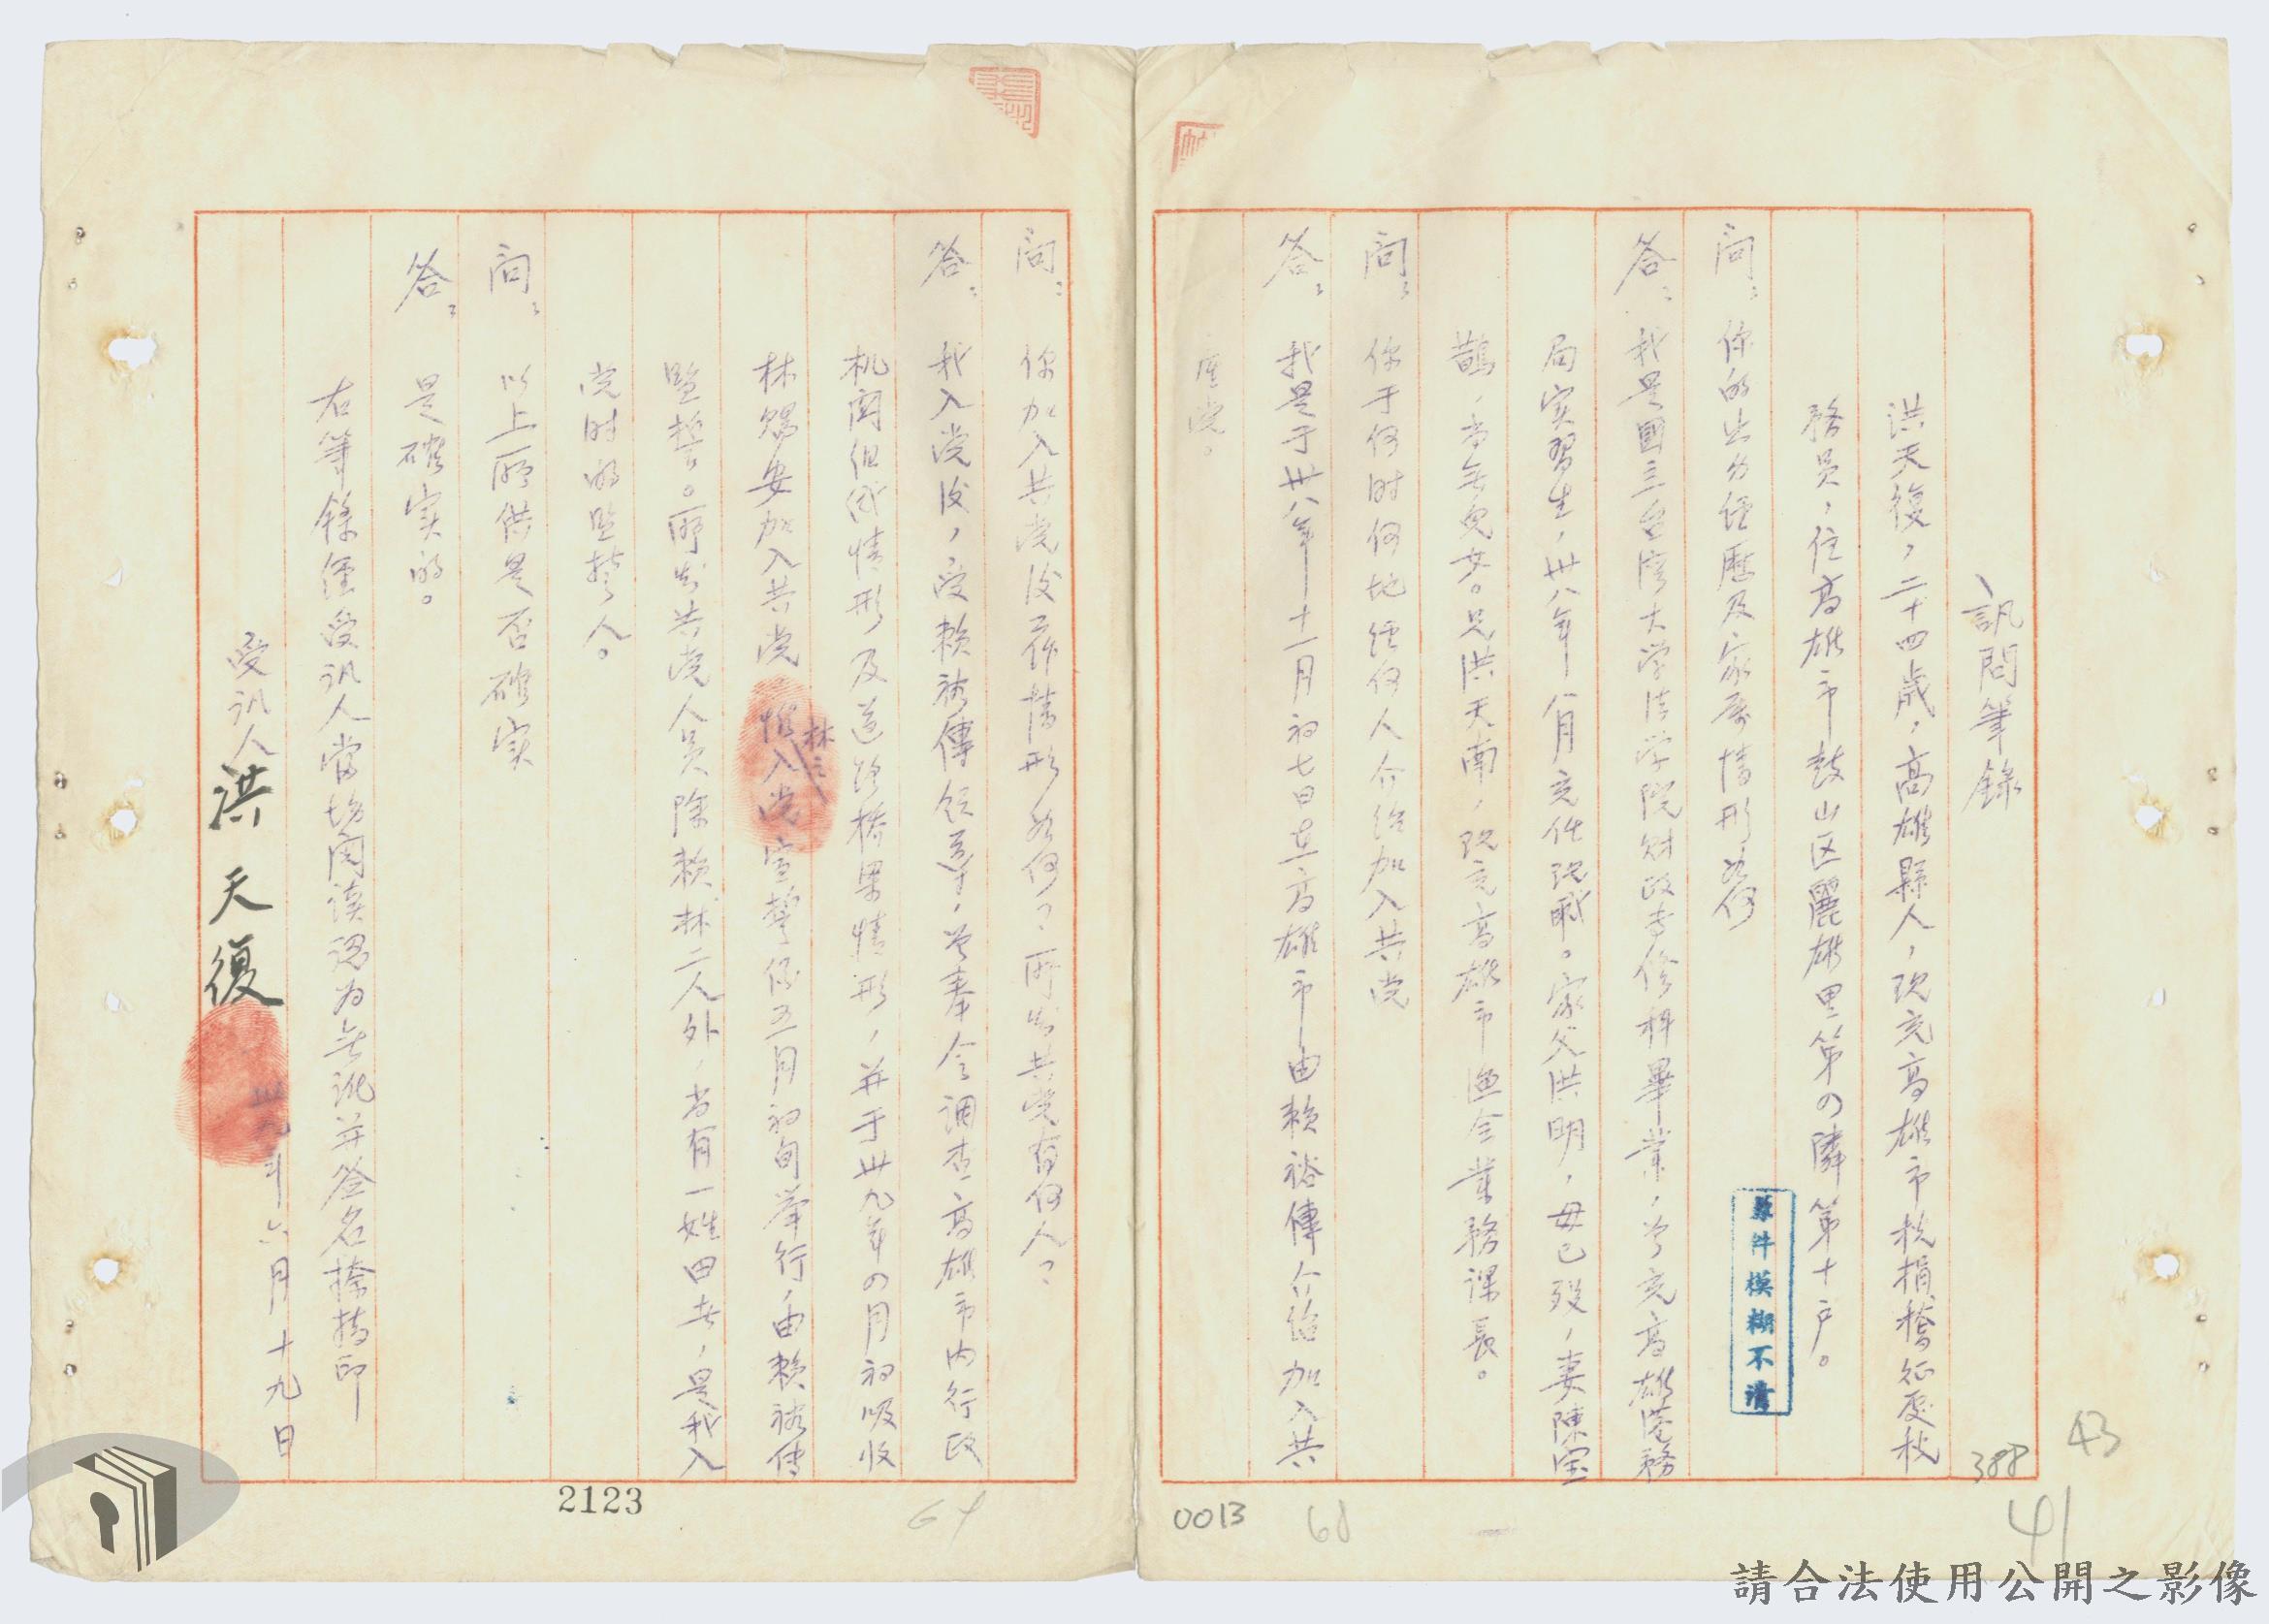 訊問筆錄
洪天復,二十四歲,高雄縣人,现充高雄市稅捐稽征處稅
務員,住高雄市鼓山区麗雄里第の隣第十户。
问: 你的出身経歷及家庭情形如何
答: 我是國立台湾大学法学院財政专修科畢業,曾充高雄港務
局实習生,卅八年八月充任现职。家父洪明,母已歿,妻陳宝
鵲,尚無兒女。兄洪天南,现充高雄市漁会業務課長。
问: 你于何时何地経何人介绍加入共党
答: 我是于卅八年十一月初七日在高雄市由赖裕傳介绍加入共
產党。
问: 你加入共党後工作情形如何?所知共党有何人?
答: 我入党後,受赖裕傳领導,曾奉令调查高雄市内行政
机関组织情形及道路橋梁情形,并于卅九年の月初吸收
林賜安加入共党 惟入党宣誓係五月初旬举行,由赖裕傳
林之
監誓。所知共党人員除赖林二人外,尚有一姓田者,是我入
党时的監誓人。
问: 以上所供是否確实
答: 是確实的。
右筆錄経受訊人當場閱读認为無訛并签名捺指印
受訊人 洪天復
卅九年六月十九日
原件模糊不清
388
43
41
0013
60
2123
64
請合法使用公開之影像